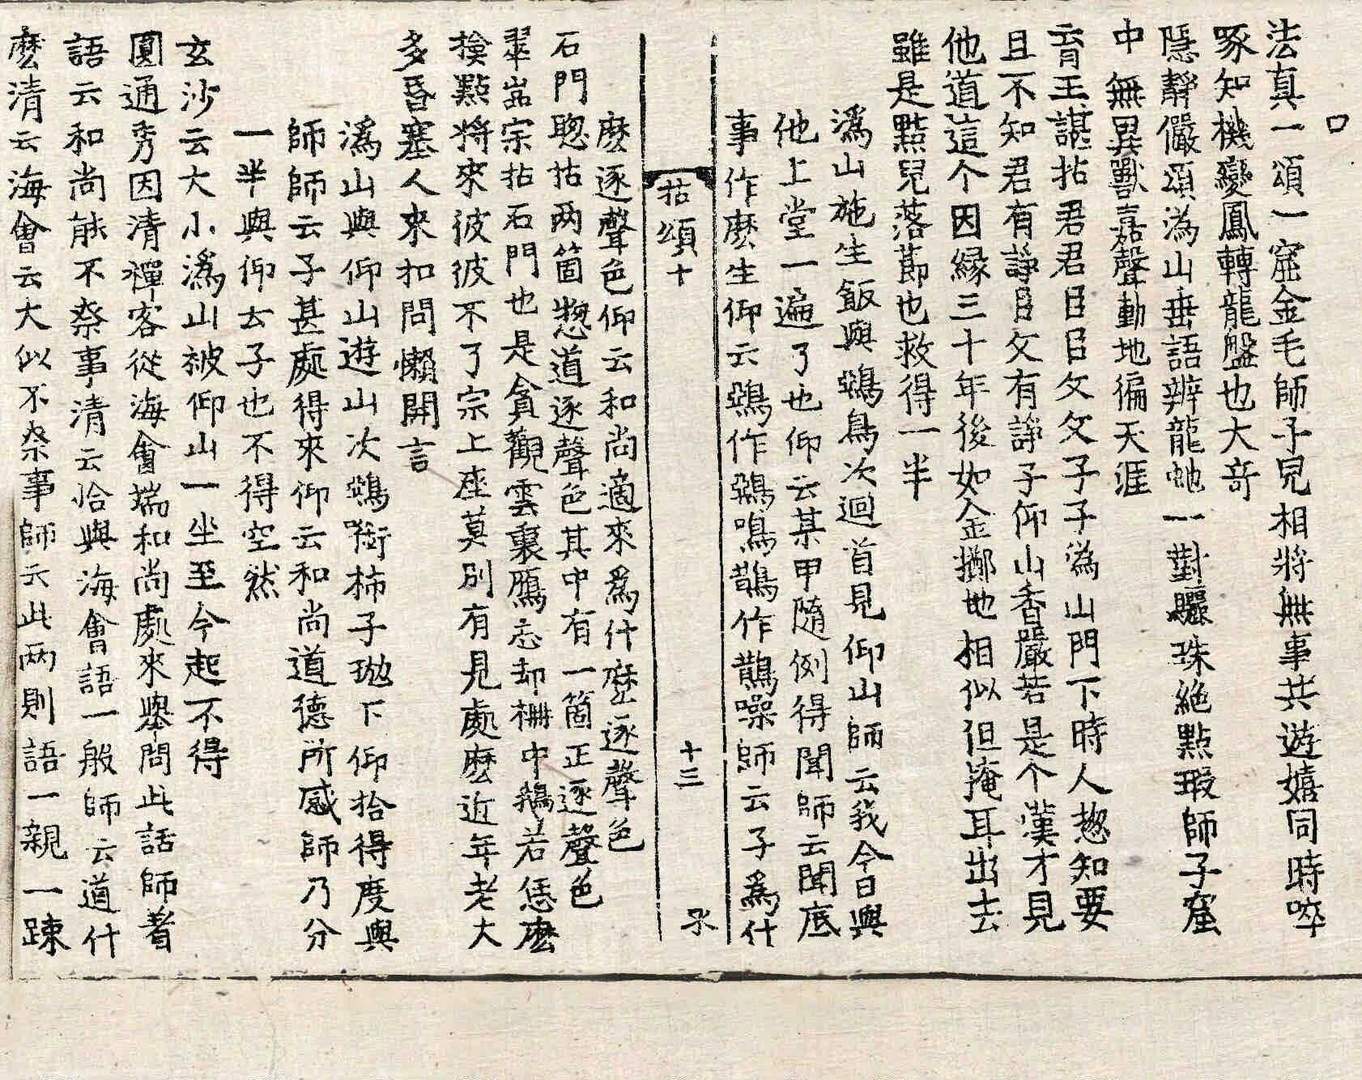 法真一頌一窟金毛師子兒相將無事共遊嬉同時啐
啄知機變鳳轉龍盤也大奇
隱靜儼頌溈山垂語辨龍虵一對驪珠絶點瑕師子窟
中無異獸嘉聲動地徧天涯
育王諶拈君君臣臣父父子子溈山門下時人揔知要
且不知君有諍臣父有諍子仰山香嚴若是个漢才見
他道這个因緣三十年後如金擲地相似但掩耳出去
雖是點兒落莭也救得一半
溈山施生飯與鵶鳥次迴首見仰山師云我今日與
他上堂一遍了也仰云某甲隨例得聞師云聞底
事作麽生仰云鵶作鵶鳴鵲作鵲噪師云子爲什
拈頌十 十三
麽逐聲色仰云和尚適來爲什麽逐聲色
石門聦拈两箇揔道逐聲色其中有一箇正逐聲色
翠嵓宗拈石門也是貪觀雲裏鴈忘却栅中鵝若恁麽
撿㸃將來彼彼不了宗上座莫別有見處麽近年老大
多昏塞人來扣問懶開言
溈山與仰山遊山次鵶銜柿子抛下仰拾得度與
師師云子甚處得來仰云和尚道德所感師乃分
一半與仰云子也不得空然
玄沙云大小溈山被仰山一坐至今起不得
圓通秀因清禪客從海會端和尚處來擧問此話師著
語云和尚能不叅事清云恰與海會語一般師云道什
麽清云海會云大似不叅事師云此两則語一親一踈